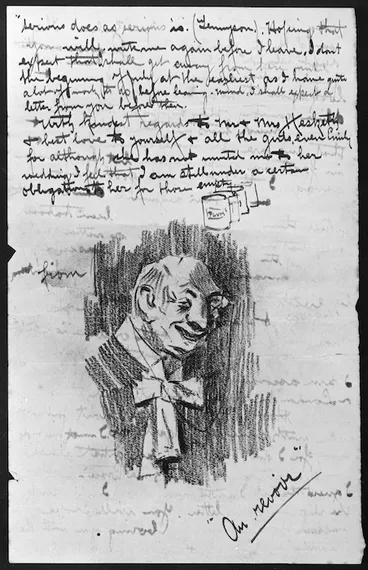 "serious does as serious is. (Tennyson). Hoping that
you will write me again before I leave, I don't
expect that I shall get away from here until
the beginning of July at the earliest, as I have quite
a lot of work to do before leaving. mind, I shall expect a
letter from you before then.
With kindest regards to Mr & Mrs Hesketh
& best love to yourself & all the girls, even Emily
for although she has not invited me to her
wedding I feel that I am still under a certain
obligation to her for those empty
from
"Au revoir"